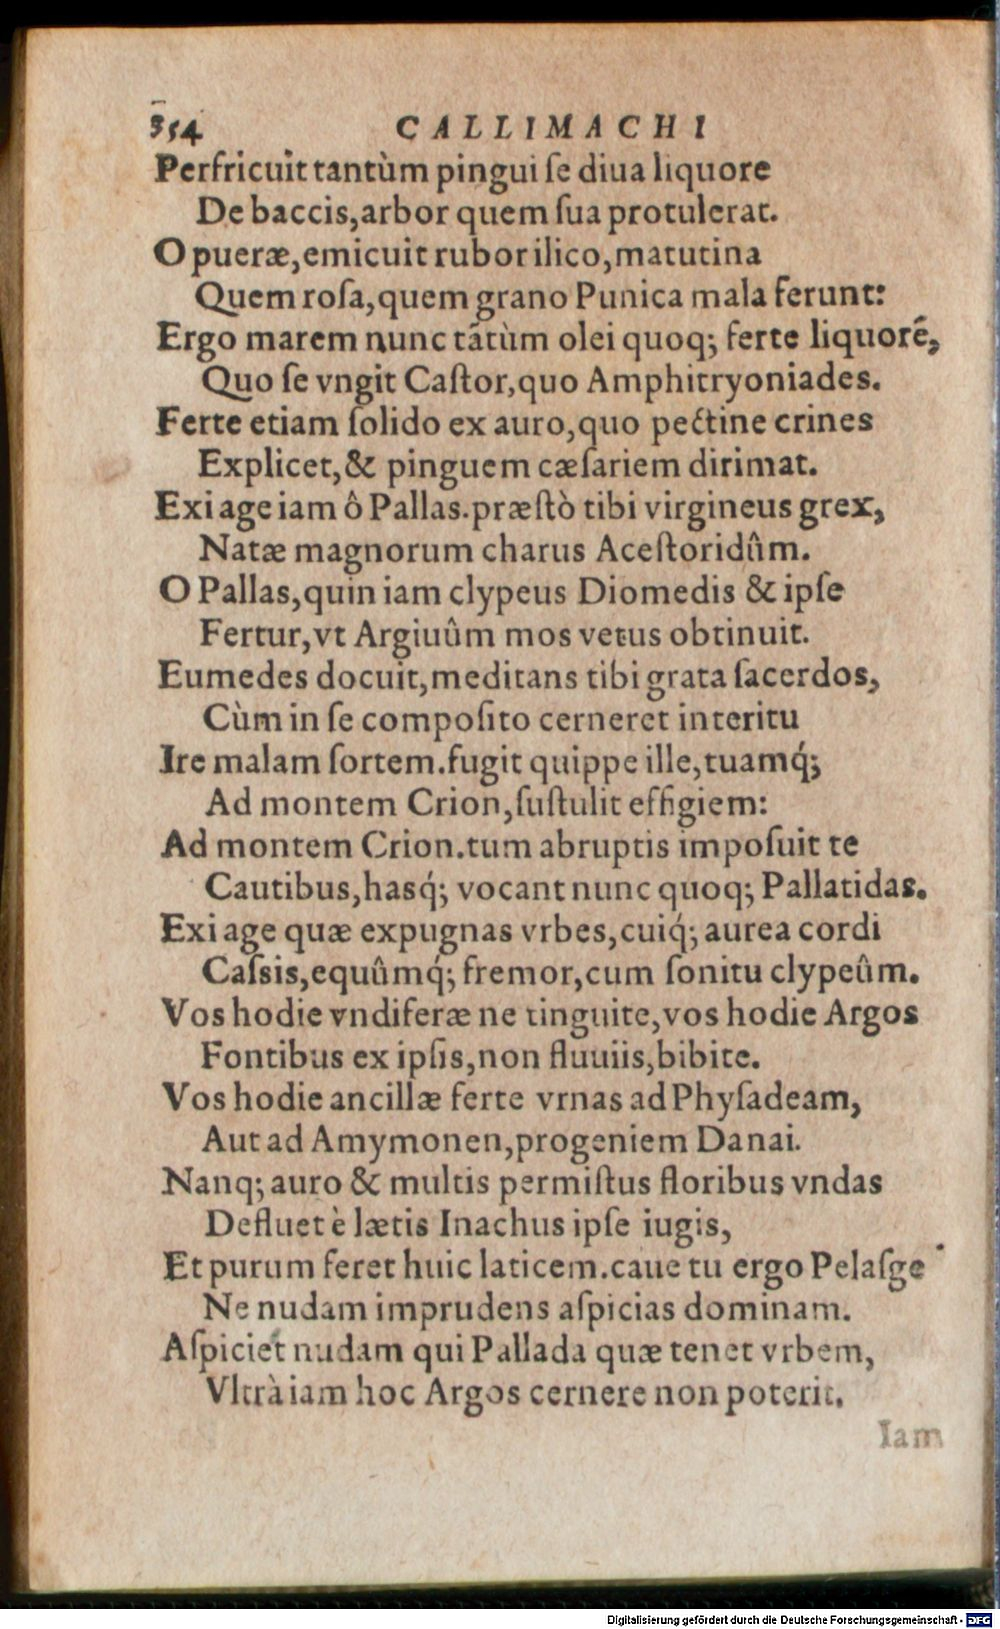 354 CALLIMACHI
Perfricuit tantùm pingui ſe diua liquore
De baccis,arbor quem ſua protulerat.
O pueræ,emicuit rubor ilico,matutina
Quem roſa,quem grano Punica mala ferunt:
Ergo marem nunc tãtùm olei quoq; ferte liquorẽ,
Quo ſe vngit Caſtor,quo Amphitryoniades.
Ferte etiam ſolido ex auro,quo pectine crines
Explicet,& pinguem cæſariem dirimat.
Exi age iam ô Pallas.præſtò tibi virgineus grex,
Natæ magnorum charus Aceſtoridûm.
O Pallas,quin iam clypeus Diomedis & ipſe
Fertur,vt Argiuûm mos vetus obtinuit.
Eumedes docuit,meditans tibi grata ſacerdos,
Cùm in ſe compoſito cerneret interitu
Ire malam ſortem.fugit quippe ille,tuamq́;
Ad montem Crion,ſuſtulit effigiem:
Ad montem Crion.tum abruptis impoſuit te
Cautibus,hasq́; vocant nunc quoq; Pallatidas.
Exi age quæ expugnas vrbes,cuiq́; aurea cordi
Caſsis,equûmq́; fremor,cum ſonitu clypeûm.
Vos hodie vndiferæ ne tinguite,vos hodie Argos
Fontibus ex ipſis,non fluuiis,bibite.
Vos hodie ancillæ ferte vrnas ad Phyſadeam,
Aut ad Amymonen,progeniem Danai.
Nanq; auro & multis permiſtus floribus vndas
Defluet è lætis Inachus ipſe iugis,
Et purum feret huic laticem.caue tu ergo Pelaſge
Ne nudam imprudens aſpicias dominam.
Aſpiciet nudam qui Pallada quæ tenet vrbem,
Vltrà iam hoc Argos cernere non poterit.
Iam
Digitalisierung gefördert durch die Deutsche Forschungsgemeinschaft - DFG